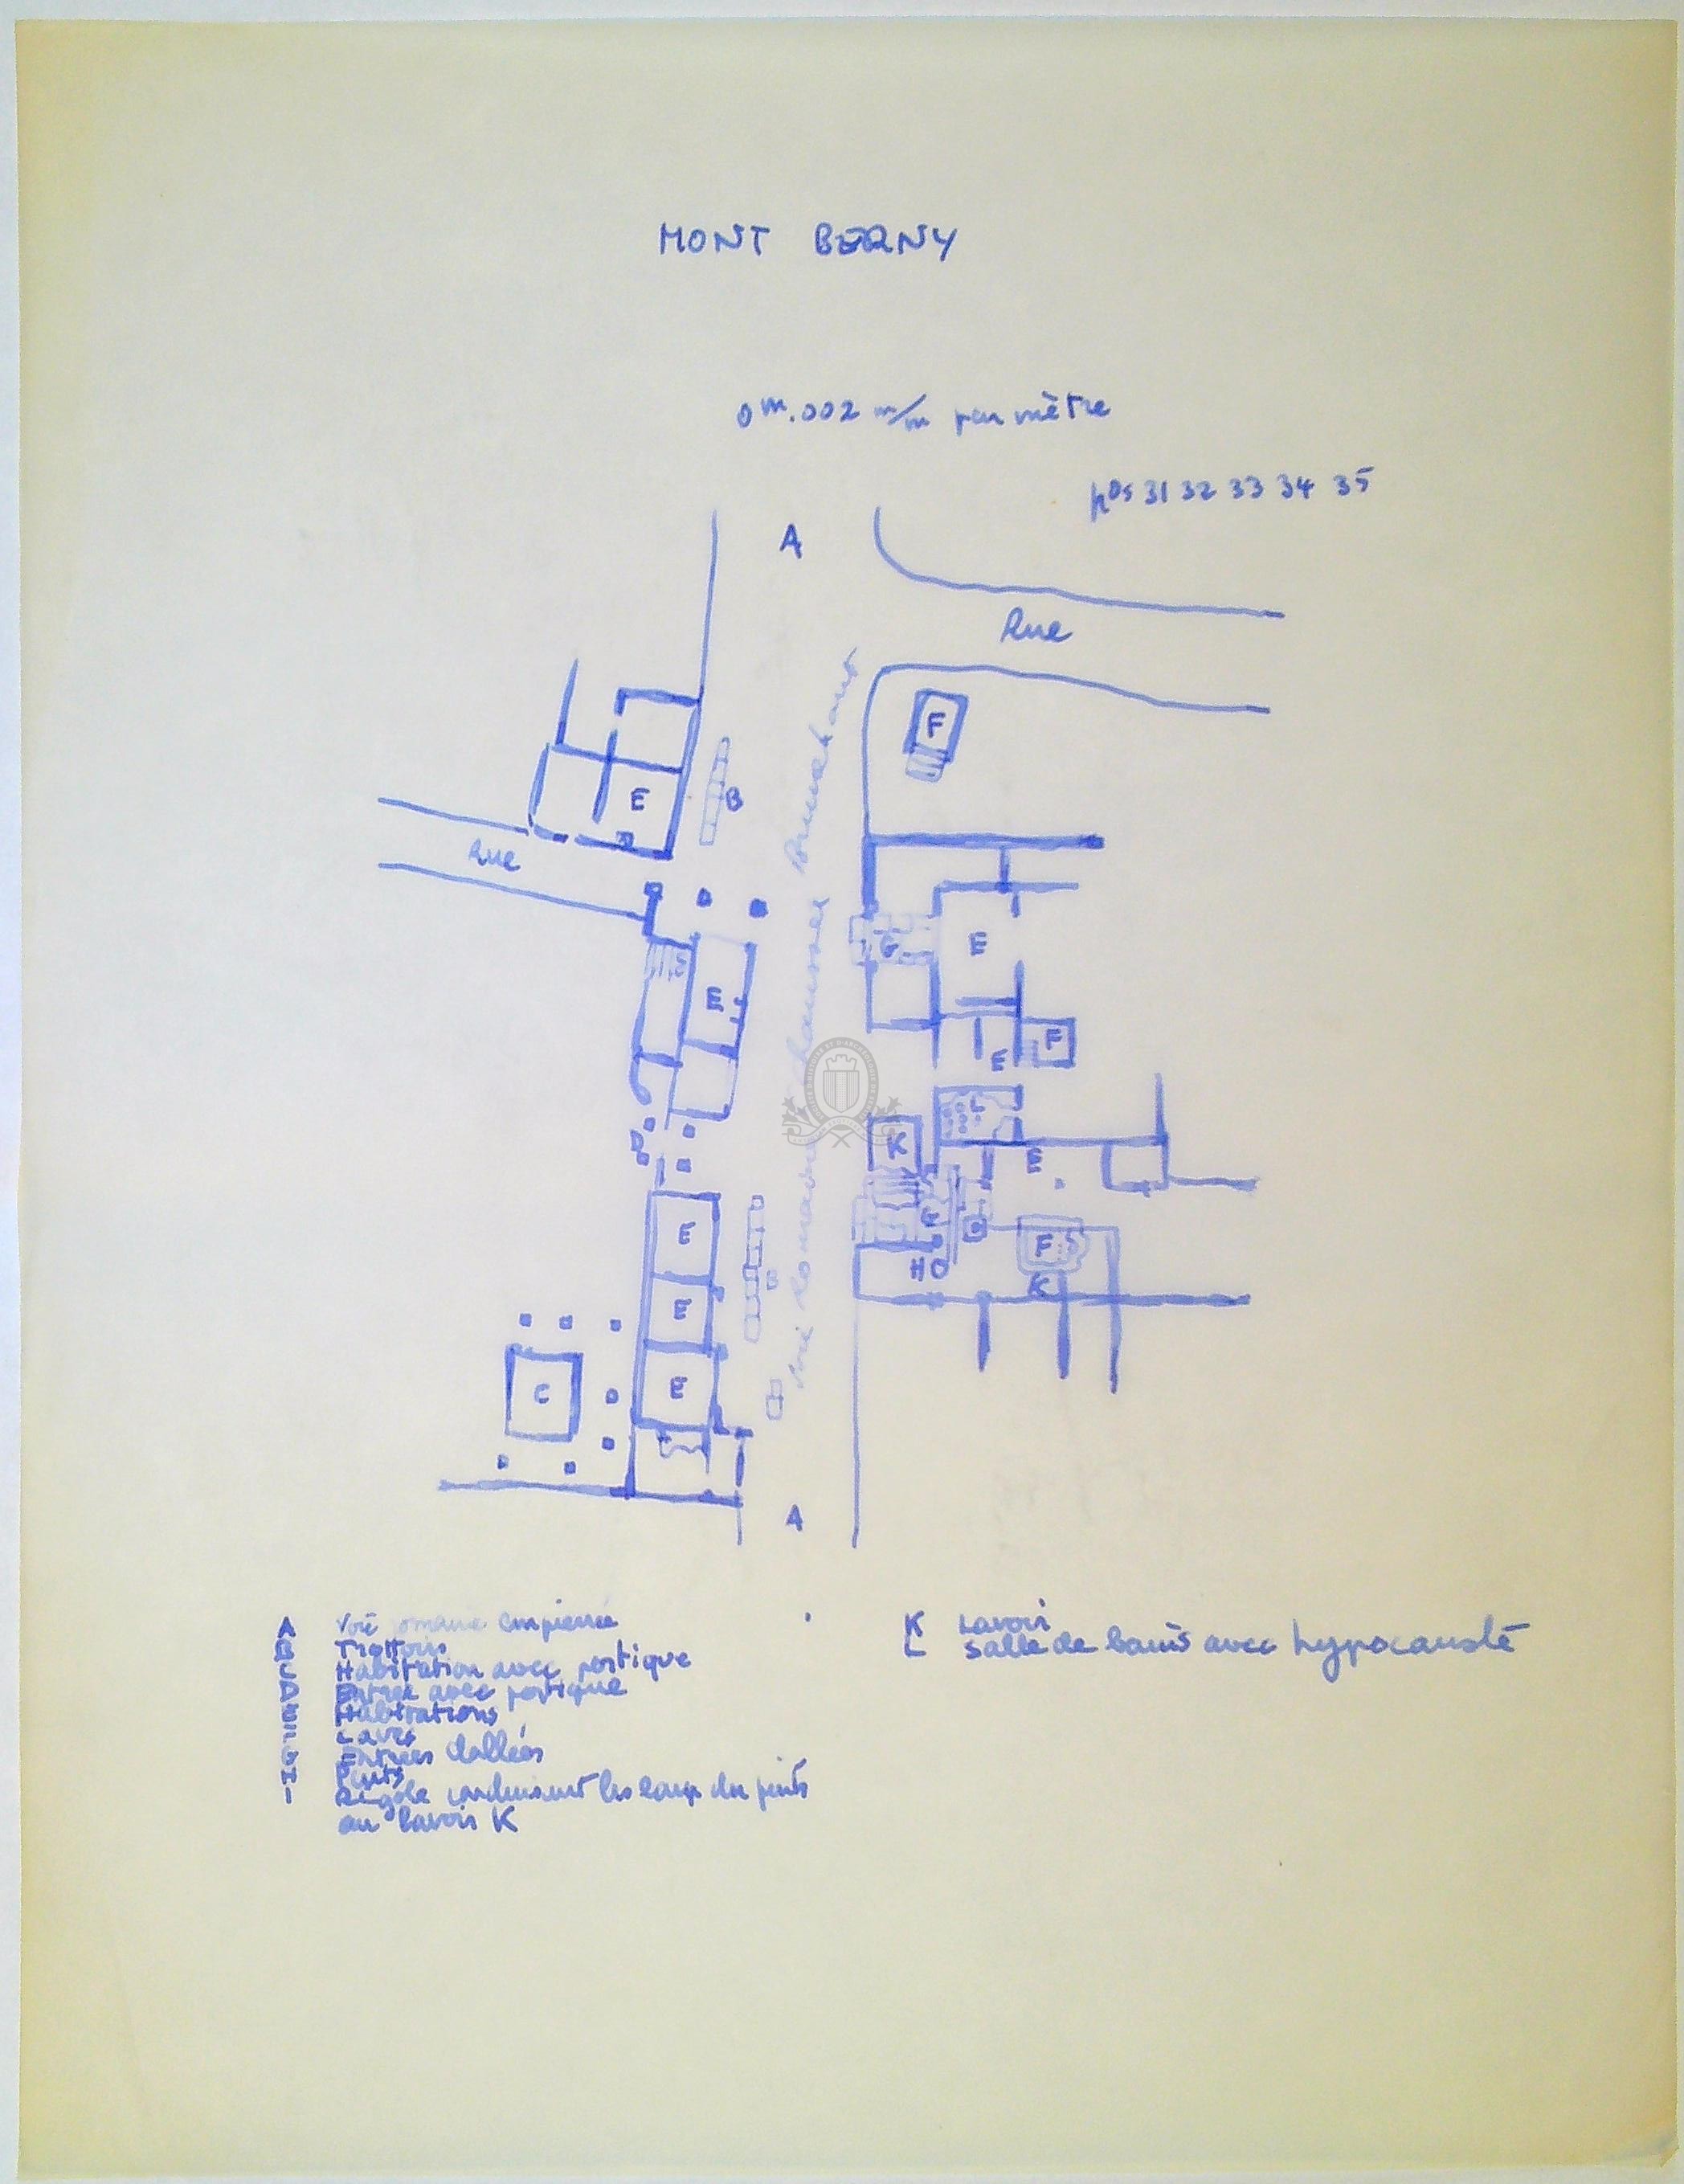 MONT BERNY
0m.002 m/m par mètre
nos 31 32 33 34 35
A
Rue
F
E
B
Rue
G
E
S
E
F
E
L
K
D
E
E
G
E
C
B
F
H
K
E
C
E
Voie romaine chaussée Brunehaut
A
A Voie romaine empierrée
B Trottoirs
C Habitation avec portique
D Entrée avec portique
E Habitations
F Caves
G Entrées dallées
H Puits
I Rigole conduisant les eaux du puits
au lavoir K
K Lavoir
L Salle de bains avec hypocauste